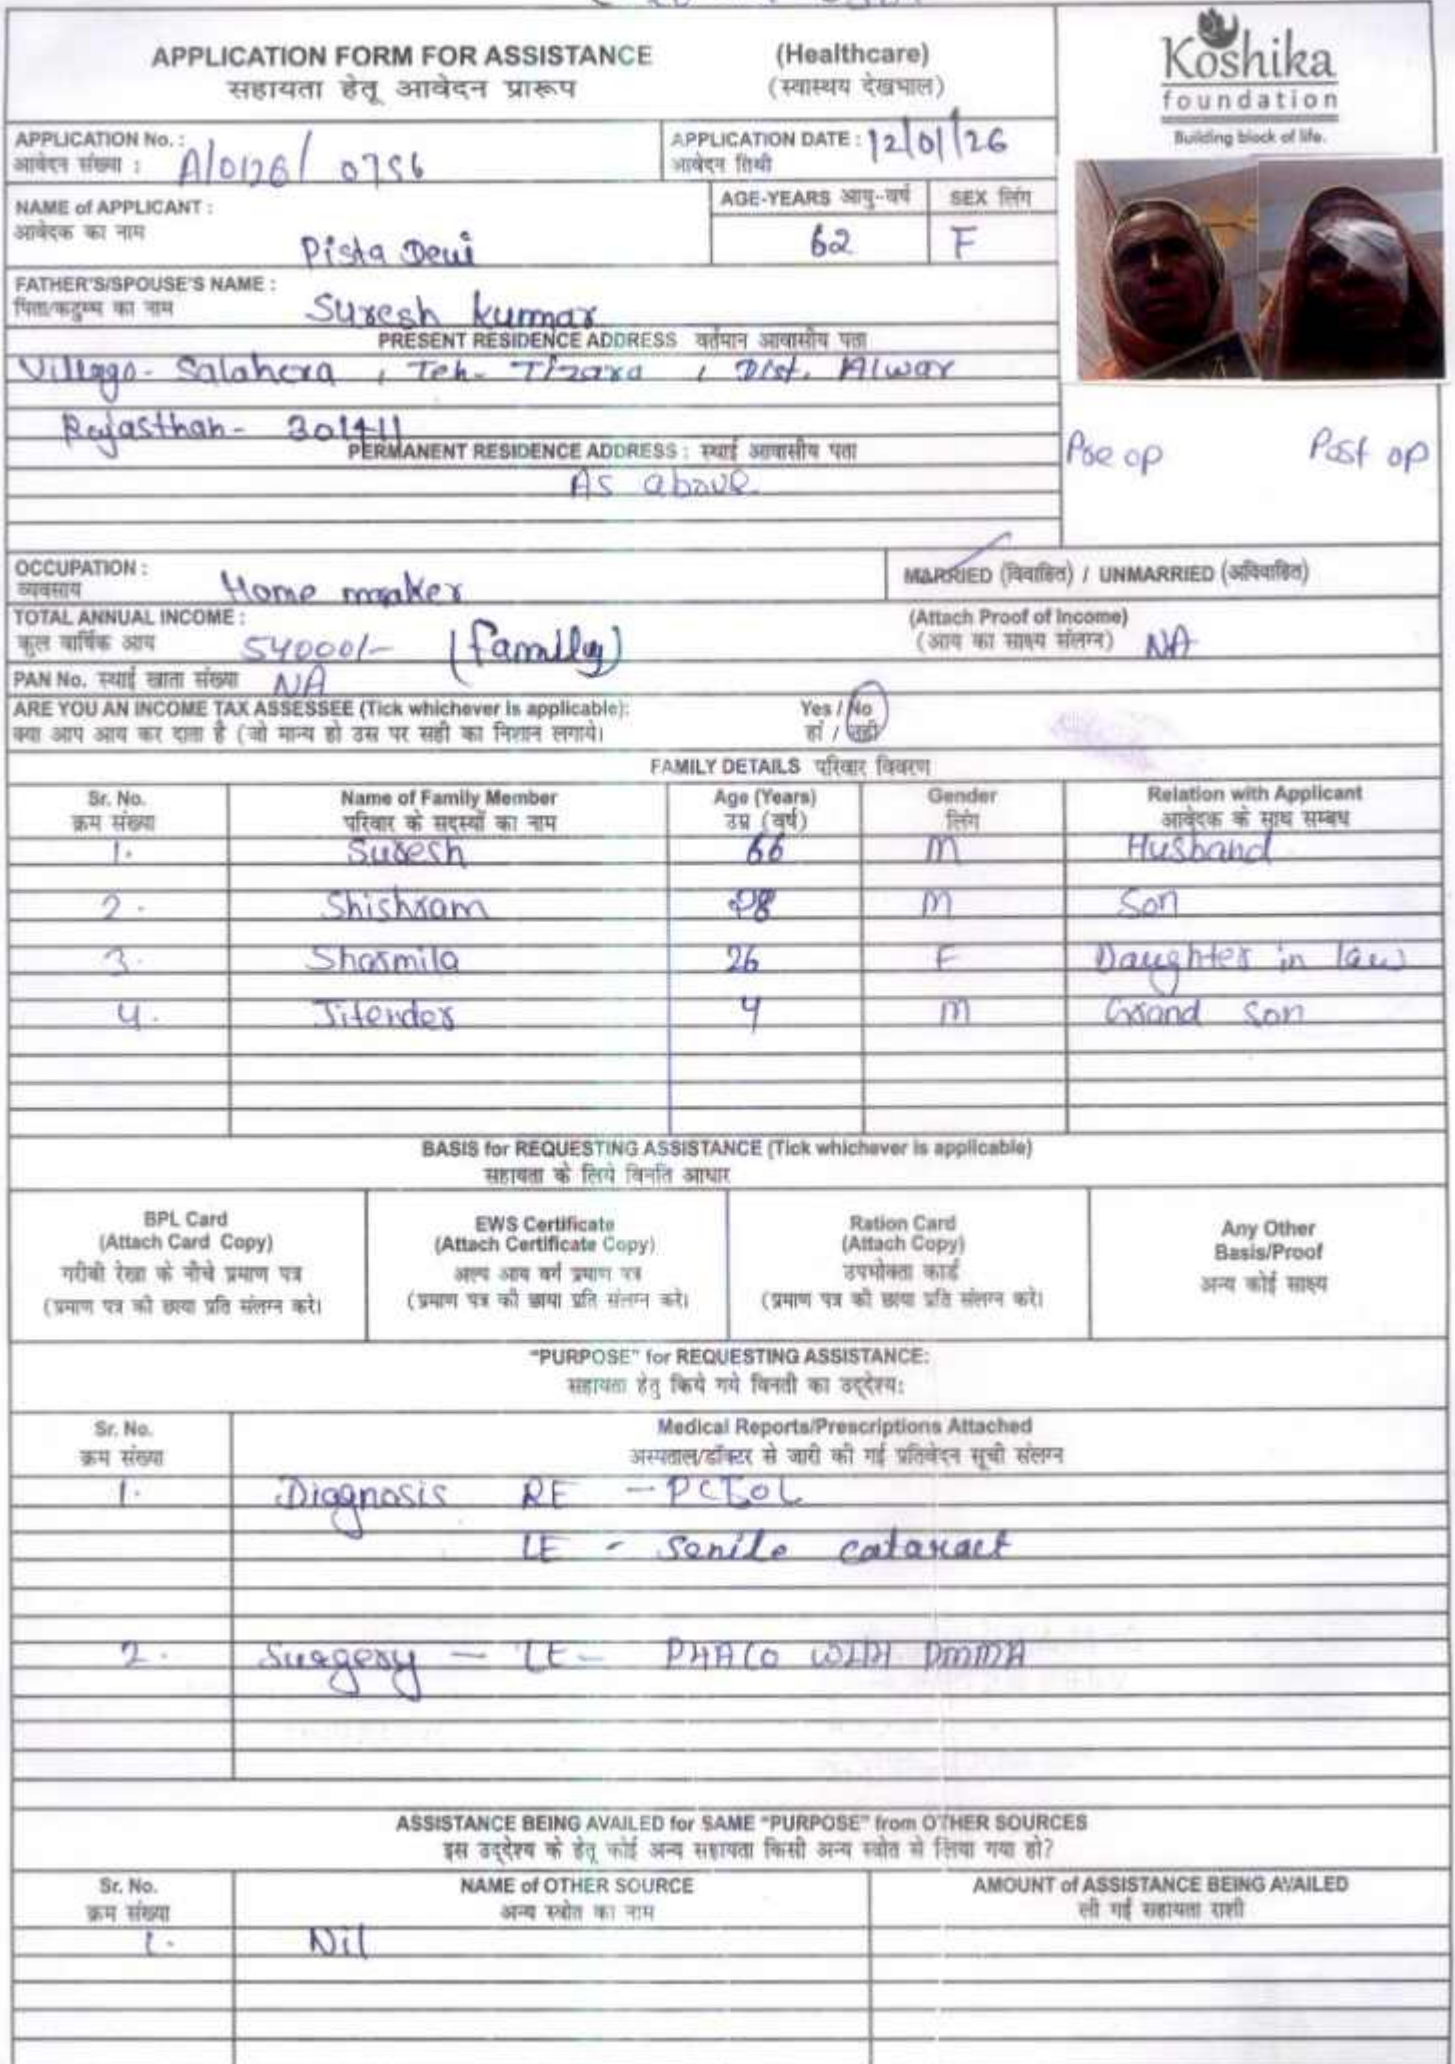 APPLICATION FORM FOR ASSISTANCE (Healthcare)
सहायता हेतू आवेदन प्रारूप (स्वास्थय देखभाल)
Koshika
foundation
Building block of life.
APPLICATION No. : A/0126/ 0756
आवेदन संख्या :
APPLICATION DATE : 12/01/26
आवेदन तिथी
NAME of APPLICANT :
आवेदक का नाम Pista Devi
AGE-YEARS आयु-वर्ष 62
SEX लिंग F
FATHER'S/SPOUSE'S NAME :
पिता/कटुम्ब का नाम Suresh kummar
PRESENT RESIDENCE ADDRESS वर्तमान आवासीय पता
Village- Salahera , Teh- Tizara , Dist. Alwar
Rajasthan- 301411
PERMANENT RESIDENCE ADDRESS : स्थाई आवासीय पता
As above
Pre op Post op
OCCUPATION :
व्यवसाय Home maker
MARRIED (विवाहित) / UNMARRIED (अविवाहित)
TOTAL ANNUAL INCOME :
कुल वार्षिक आय 54000/- (family)
(Attach Proof of Income)
(आय का साक्ष्य संलग्न) NA
PAN No. स्थाई खाता संख्या NA
ARE YOU AN INCOME TAX ASSESSEE (Tick whichever is applicable): Yes / No
क्या आप आय कर दाता है (जो मान्य हो उस पर सही का निशान लगाये। हां / नही
FAMILY DETAILS परिवार विवरण
Sr. No. Name of Family Member Age (Years) Gender Relation with Applicant
क्रम संख्या परिवार के सदस्यों का नाम उम्र (वर्ष) लिंग आवेदक के साथ सम्बध
1. Suresh 66 M Husband
2. Shishram 28 M Son
3. Sharmila 26 F Daughter in law
4. Jitender 4 M Grand Son
BASIS for REQUESTING ASSISTANCE (Tick whichever is applicable)
सहायता के लिये विनति आधार
BPL Card
(Attach Card Copy)
गरीबी रेखा के नीचे प्रमाण पत्र
(प्रमाण पत्र की छाया प्रति संलग्न करे।
EWS Certificate
(Attach Certificate Copy)
अल्प आय वर्ग प्रमाण पत्र
(प्रमाण पत्र की छाया प्रति संलग्न करे।
Ration Card
(Attach Copy)
उपभोक्ता कार्ड
(प्रमाण पत्र की छाया प्रति संलग्न करे।
Any Other
Basis/Proof
अन्य कोई साक्ष्य
"PURPOSE" for REQUESTING ASSISTANCE:
सहायता हेतु किये गये विनती का उद्देश्य:
Sr. No. Medical Reports/Prescriptions Attached
क्रम संख्या अस्पताल/डॉक्टर से जारी की गई प्रतिवेदन सूची संलग्न
1. Diagnosis RE - PCIOL
LE - Senile cataract
2. Surgery - LE - PHACO WITH PMMA
ASSISTANCE BEING AVAILED for SAME "PURPOSE" from OTHER SOURCES
इस उद्देश्य के हेतू कोई अन्य सहायता किसी अन्य स्त्रोत से लिया गया हो?
Sr. No. NAME of OTHER SOURCE AMOUNT of ASSISTANCE BEING AVAILED
क्रम संख्या अन्य स्त्रोत का नाम ली गई सहायता राशी
1. Nil